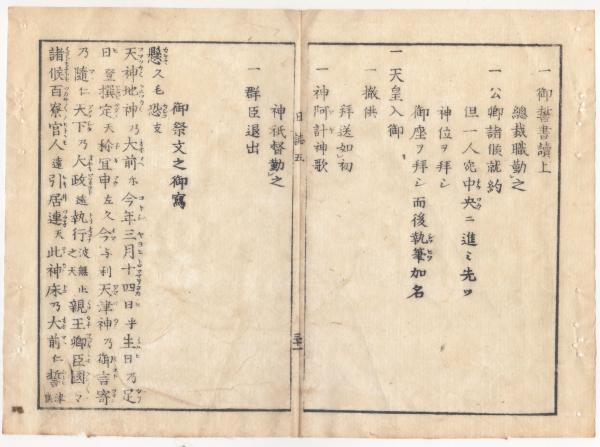 一 御誓書讀上
總裁職勤之
一 公卿諸侯就約
但一人宛中央ニ進ミ先ツ
神位ヲ拜シ
御座ヲ拜シ而後執筆加名
一 天皇入御
一 撤供
拜送如初
一 神阿計神歌
神祇督勤之
一 群臣退出
日誌五
御祭文之御寫
懸久毛恐支
天神地神乃大前尓今年三月十四日乎生日乃足
日登撰定天祢宜申左久今与利天津神乃御言寄
乃隨仁天下乃大政遠執行波無止之天親王卿臣國々
諸侯百寮官人遠引居連天此神床乃大前仁誓